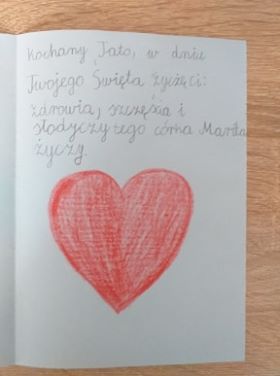 Kochany Tato, w dniu
Twojego Święta życzę ci:
zdrowia, szczęścia i
słodyczy tego córka Marta
życzy.